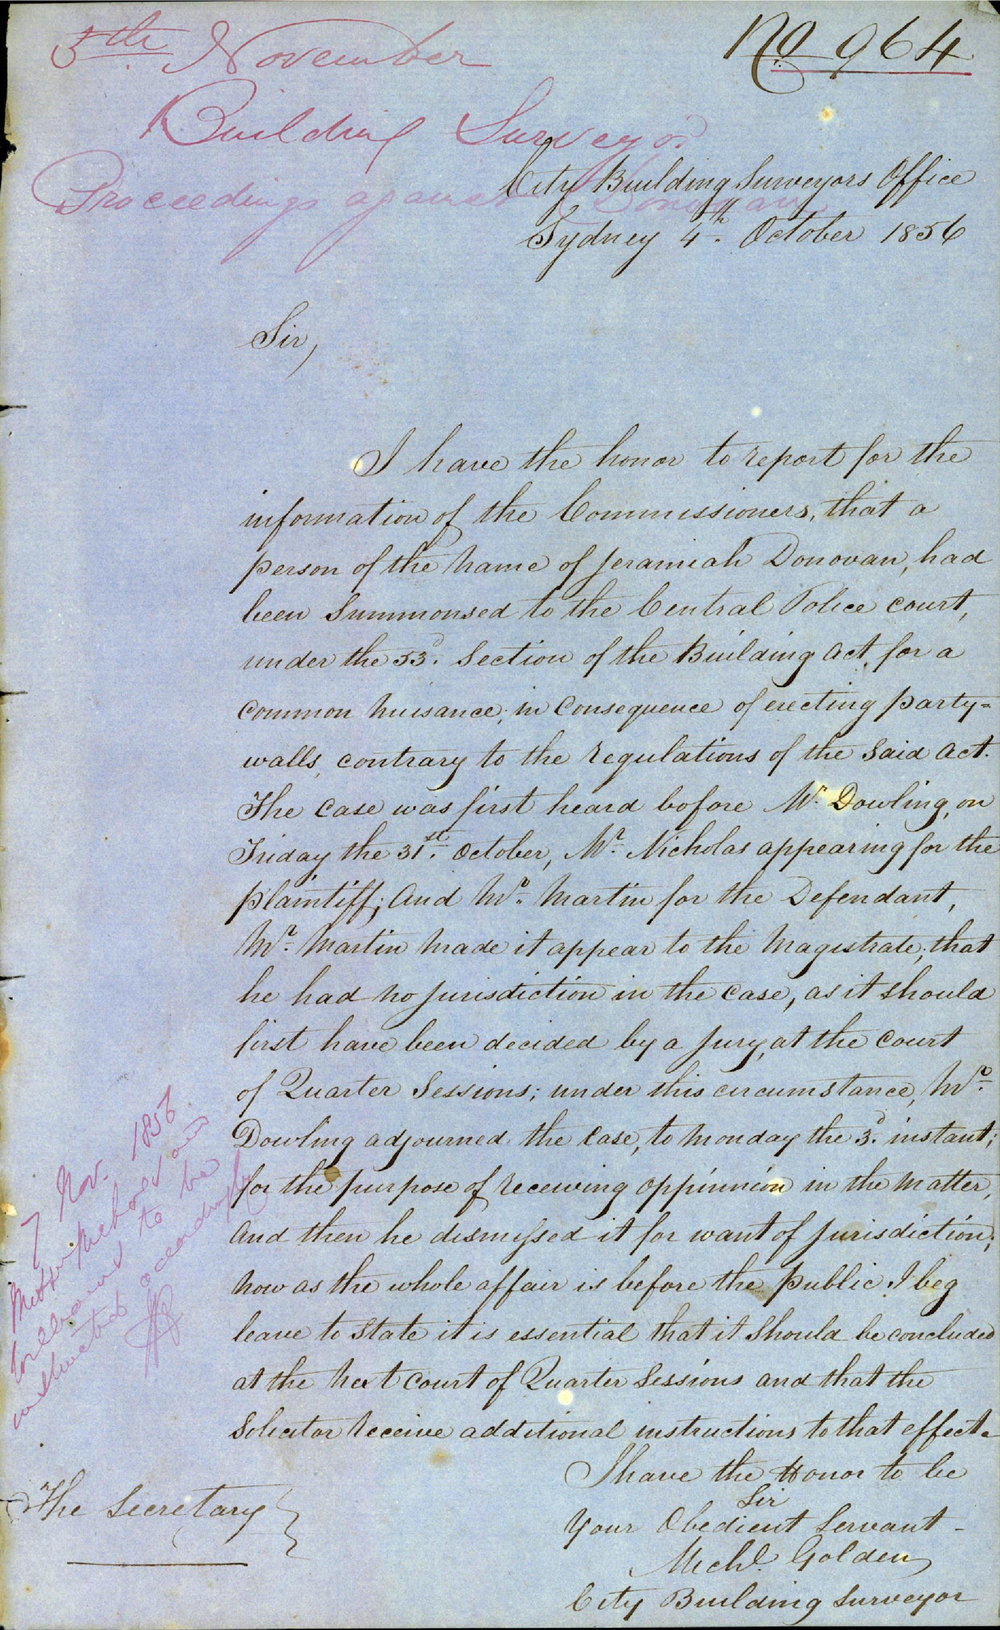 5th November
No 964
Building Surveyor
Proceedings against Donovan
City Building Surveyors Office
Sydney 4th. October 1856
Sir,
I have the honor to report for the
information of the Commissioners, that a
person of the name of Jeramiah Donovan, had
been Summonsed to the Central Police Court,
under the 33d. Section of the Building Act, for a
Common nuisance; in Consequence of erecting party=
walls, contrary to the regulations of the Said Act.
The Case was first heard before Mr. Dowling, on
Friday the 31st. October, Mr. Nicholas appearing for the
plaintiff; And Mr. Martin for the Defendant,
Mr. Martin made it appear to the Magistrate, that
he had no jurisdiction in the Case, as it should
first have been decided by a Jury, at the Court
of Quarter Sessions; under this circumstance, Mr.
Dowling adjourned the Case, to Monday the 3d. instant;
for the purpose of receiving oppinnion in the matter,
And then he dismissed it for want of jurisdiction,
now as the whole affair is before the public I beg
leave to State it is essential that it Should be concluded
at the next Court of Quarter Sessions and that the
Solicitor receive additional instructions to that effect.
I have the Honor to be
Sir
Your Obedient Servant
Michl. Golden
City Building Surveyor
The Secretary
7 Nov. 1856
Messrs Nichols and
to be
instructed accordingly